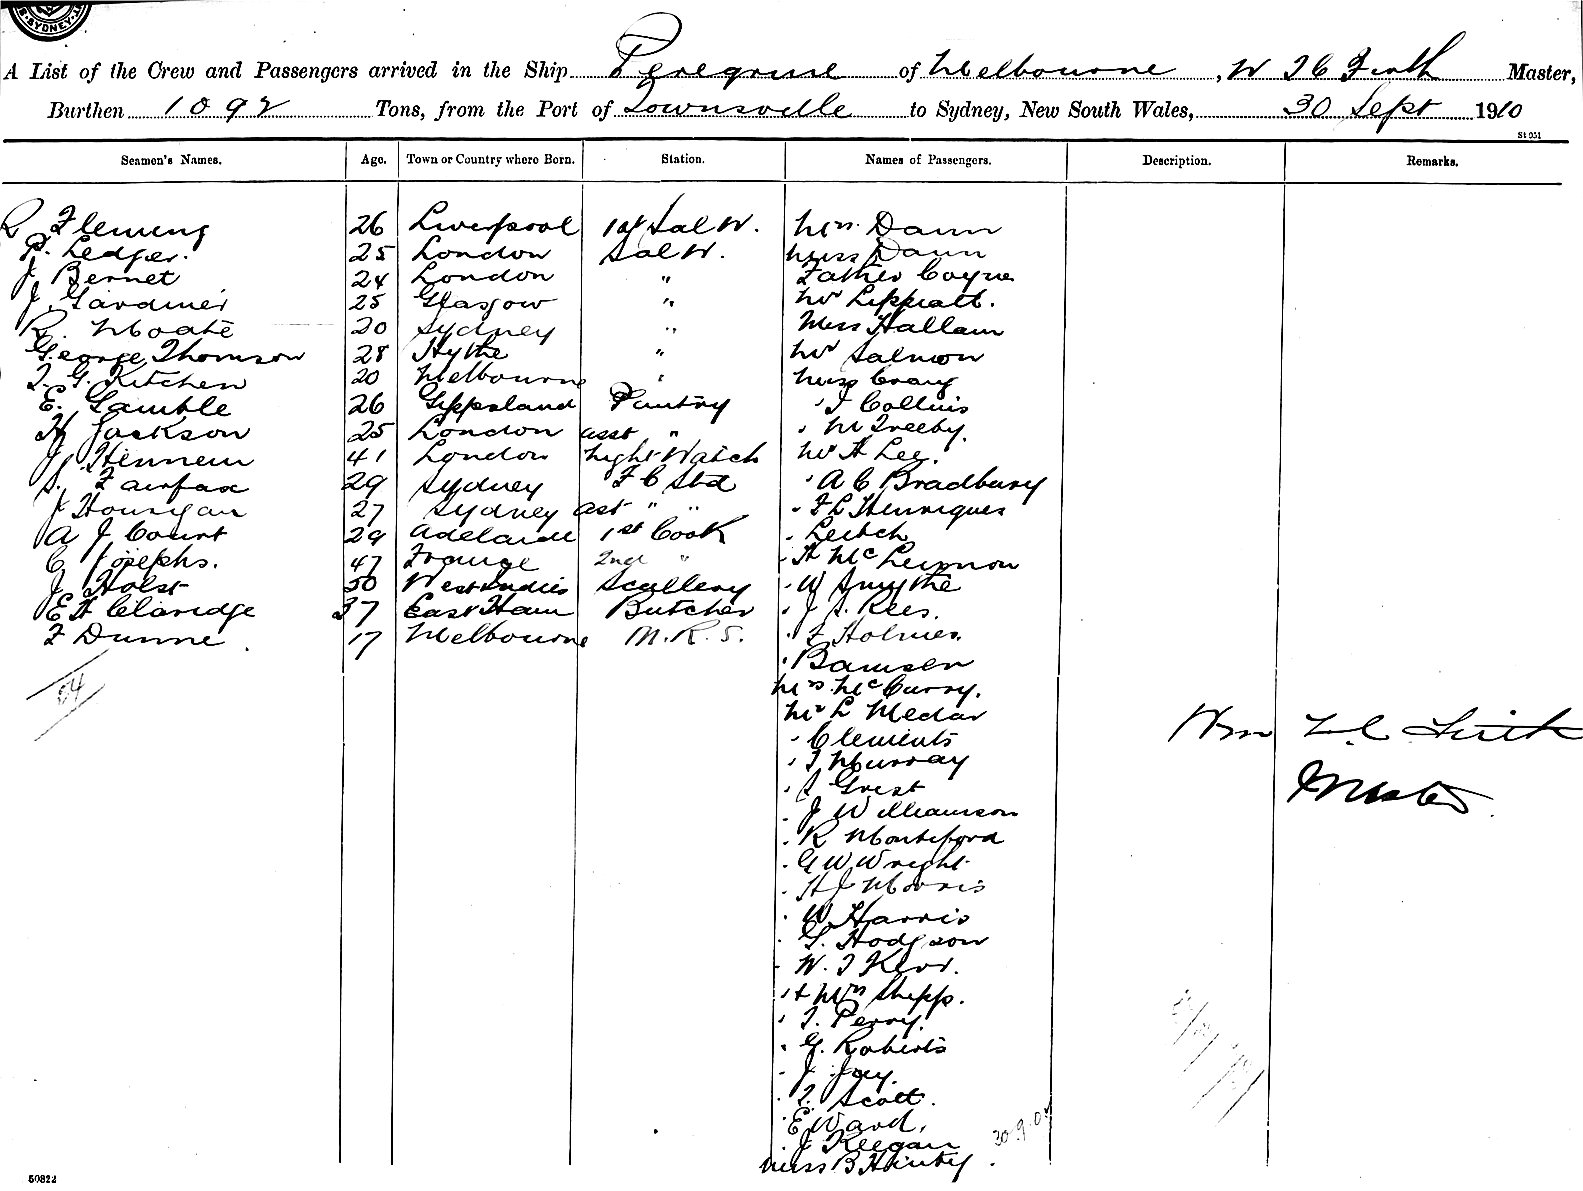 SYDNEY
A List of the Crew and Passengers arrived in the Ship Peregrine of Melbourne, W Firth Master,
Burthen 1092 Tons, from the Port of Townsville to Sydney, New South Wales, 30 Sept 1910
St 951
Seamen's Names. Age. Town or Country where Born. Station. Names of Passengers. Description. Remarks.
R Fleming 26 Liverpool 1st Sal W. Mrs Dann
P. Ledger. 25 London Sal W. Miss Dann
J Bernet 24 London " Father Coyne
J. Gardiner 25 Glasgow " Mr Lippiatt.
R. Moate 20 Sydney " Miss Hallam
George Thomson 28 Hythe " Mr Salmon
T. G. Kitchen 20 Melbourne " Miss Craig
E. Gamble 26 Gippsland Pantry " J Collins
H Jackson 25 London asst " " M Treeby.
J. Hennem 41 London Night Watch Mr A Lee.
S. Fairfax 29 Sydney F C Std " A C Bradbury
J Hourigan 27 Sydney ast " " " F L Henriques
A J Court 29 Adelaide 1st Cook " Leitch
C Josephs. 47 France 2nd " " A McLennon
J Holst 50 West Indies Scullery " W Smythe
E H Claridge 37 East Ham Butcher " J S. Rees.
F Dunne 17 Melbourne M.R.S. " F Holmes
" Bamsen
54
Mrs McCurry.
Mr L Medar
" Clements
" T Murray
Wm Firth
" J Grist
Master
" J Williamson
" R Monteford
" G W Wright
" H J Morris
" W Harris
" G. Hodgson
" W. T Kerr.
" & Mrs Shepp.
" T. Perry.
" G. Roberts
" J Jay.
" T. Scott.
" E Ward.
" J Keegan
Miss B Hinty
50822